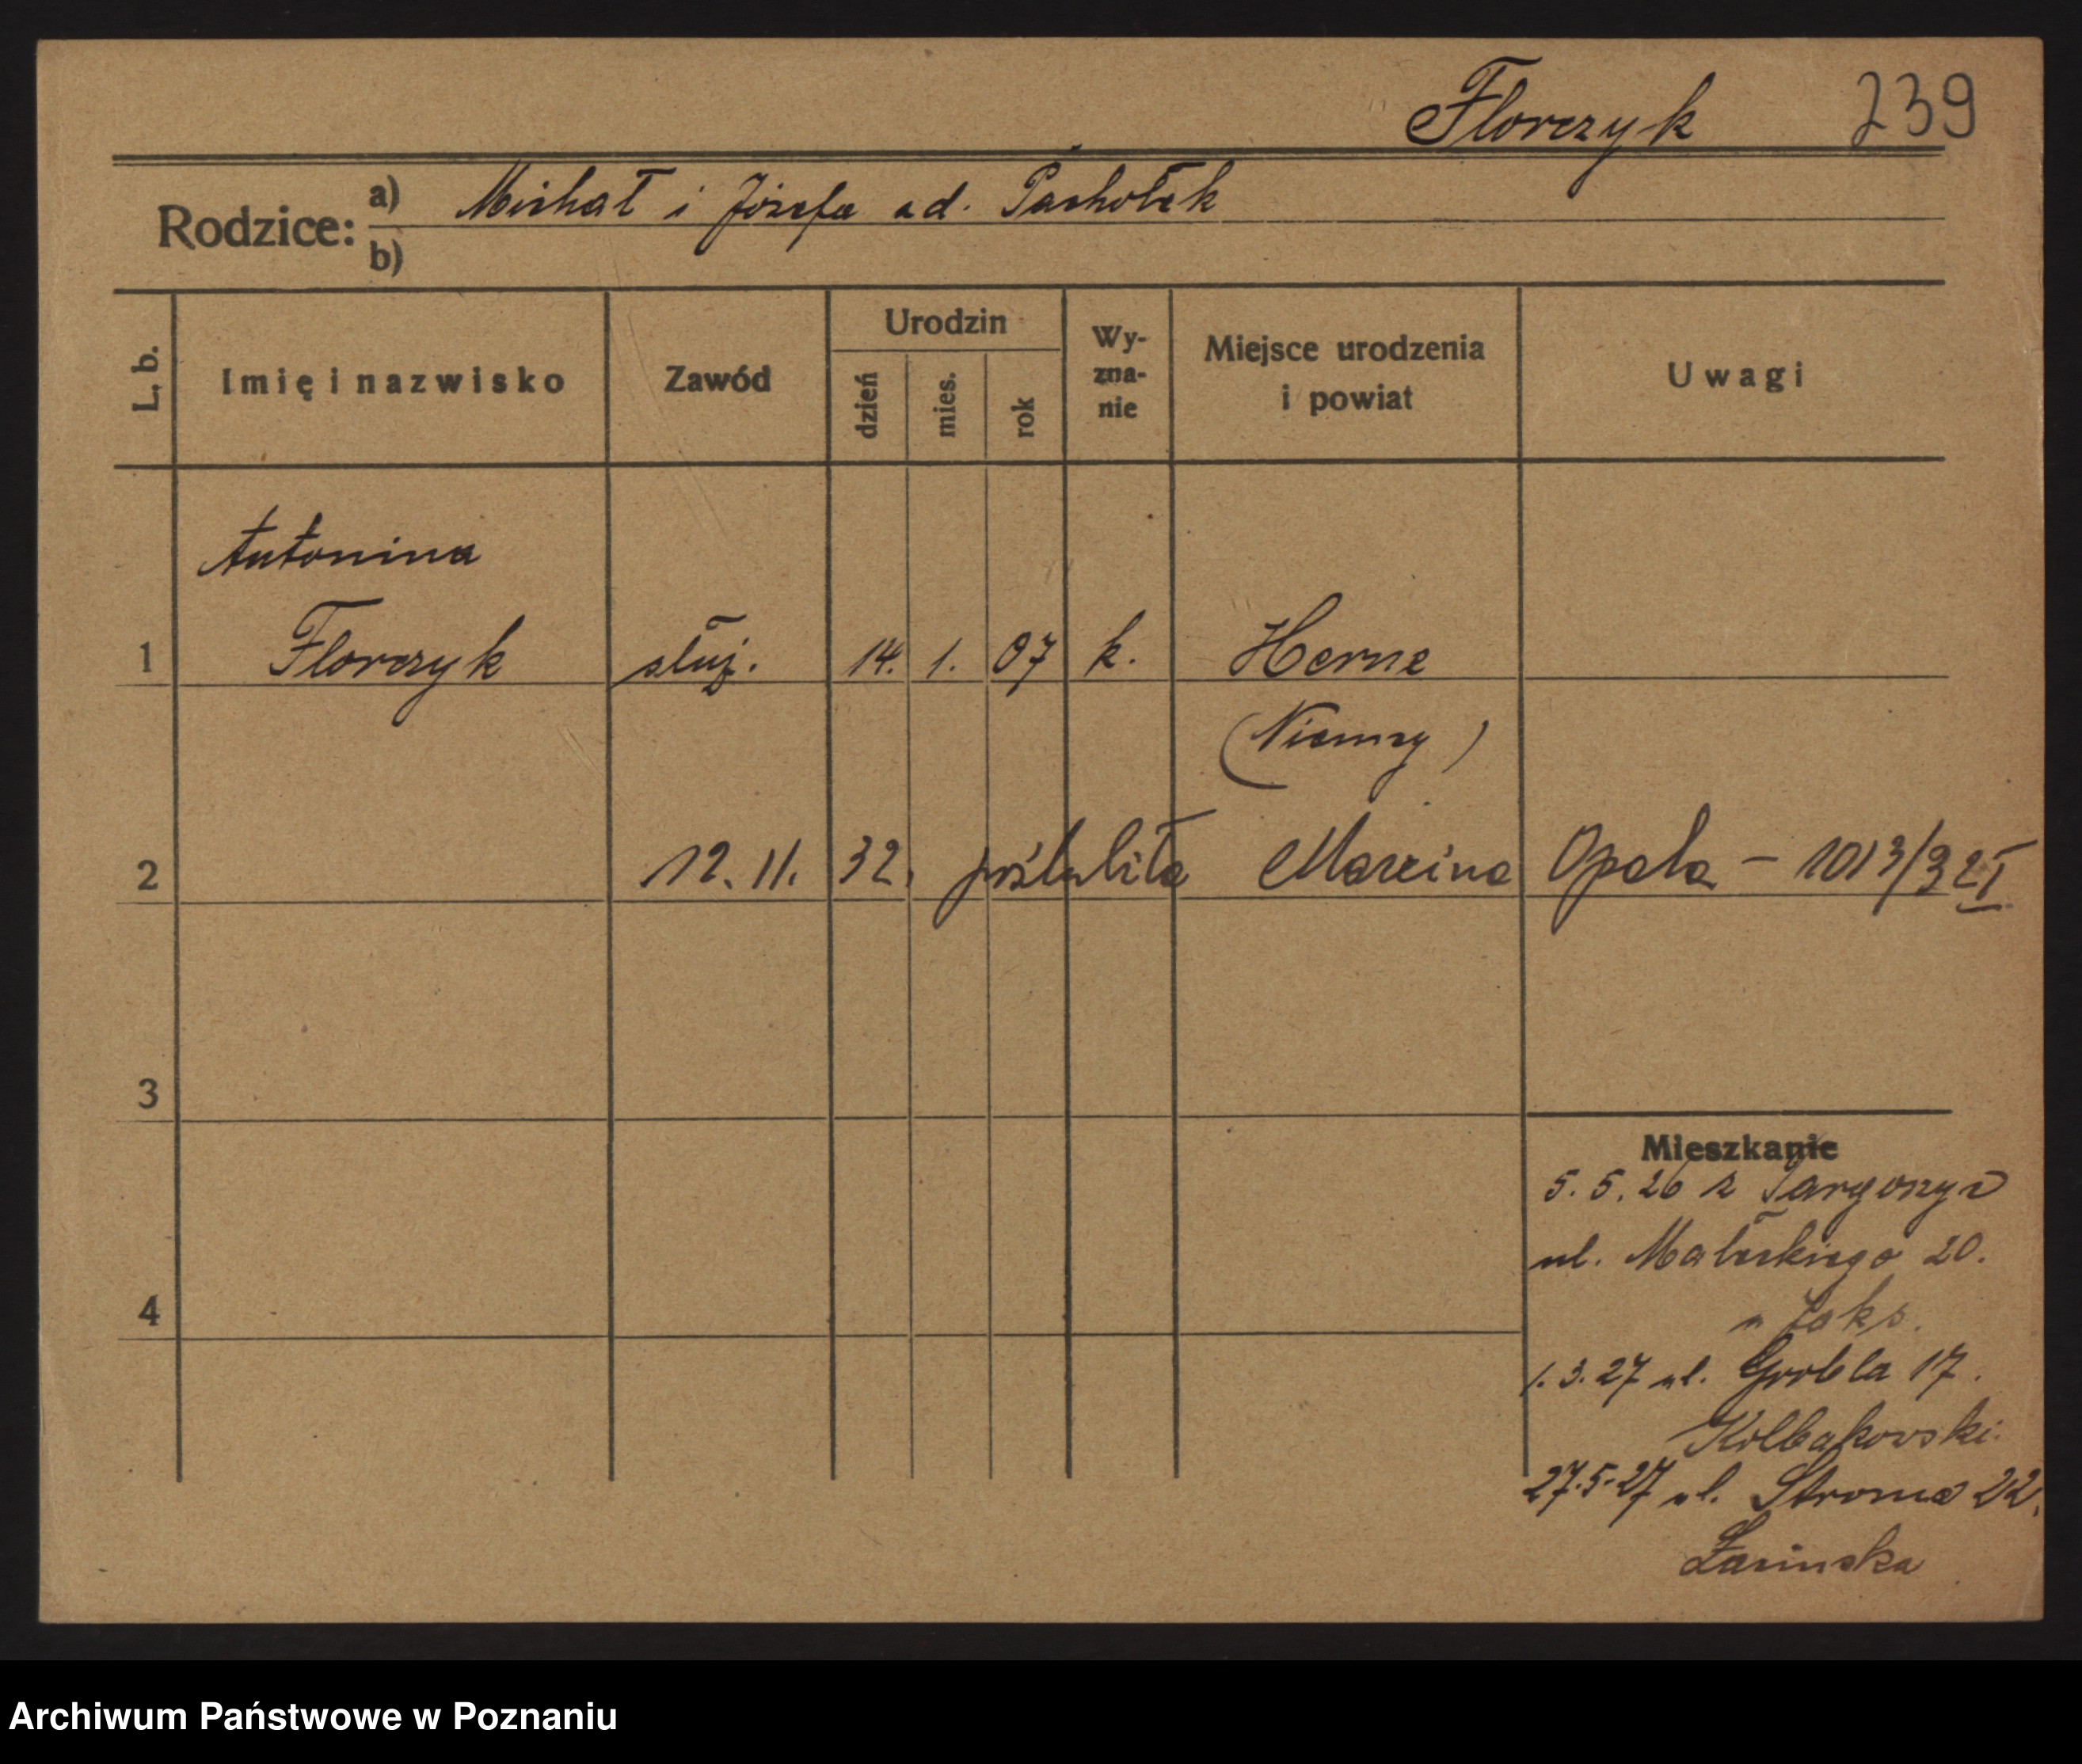 Florczyk 239
Rodzice: a) Michał i Józefa ad. Pachołek
b)
L. b. Imię i nazwisko Zawód Urodzin dzień mies. rok Wy-zna-nie Miejsce urodzenia i powiat Uwagi
Antonina
1 Florczyk służ. 14. 1. 07 k. Herne
(Niemcy)
2 12. 11. 32. poślubiła Marcina Opala - 1013/32 I
3
Mieszkanie
5. 5. 26 z
ul. Małeckiego 20.
4
1. 3. 27 ul. Grobla 17.
27.5.27 ul. Stroma 22.
Archiwum Państwowe w Poznaniu